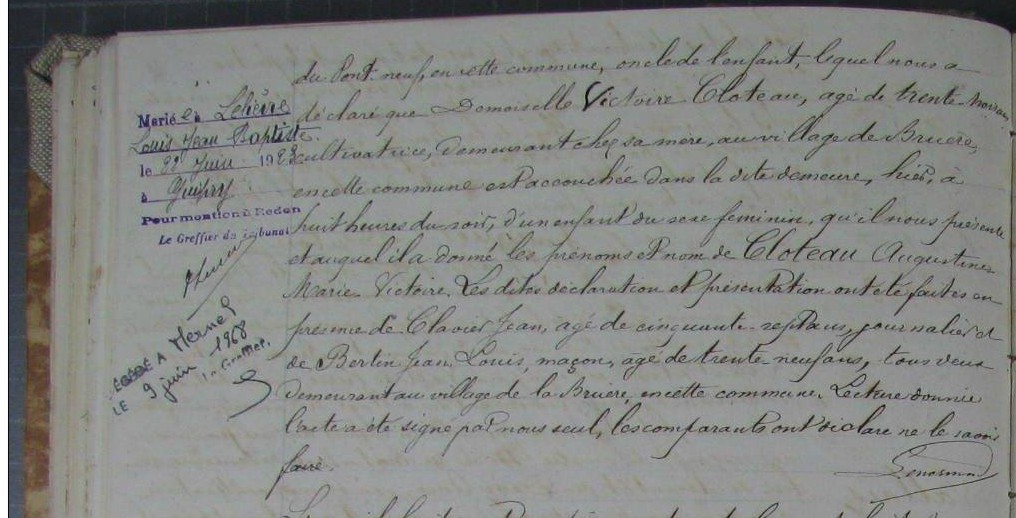 du Pont-neuf, en cette commune, oncle de l'enfant, lequel nous a
déclaré que Demoiselle Victoire Cloteau, agé de trente-trois ans,
cultivatrice, demeurant chez sa mère, au village de Bruère,
en cette commune est accouchée dans la dite demeure, hier, à
huit heures du soir, d'un enfant du sexe féminin, qu'il nous présente
et auquel il a donné les prénoms et nom de Cloteau Augustine
Marie Victoire. Les dites déclaration et présentation ont été faites en
présence de Clavier Jean, agé de cinquante-sept ans, journalier et
de Bertin Jean Louis, maçon, agé de trente-neuf ans, tous deux
demeurant au village de la Bruère, en cette commune. Lecture donnée
l'acte a été signé par nous seul, les comparants ont déclaré ne le savoir
faire.
Lenormand
Marié e à Lelièvre
Louis Jean Baptiste
le 22 Juin 1923
à Guipry
Pour mention à Redon
Le Greffier du Tribunal
DÉCÉDÉ A Mernel
LE 9 juin 1968
Le Greffier,